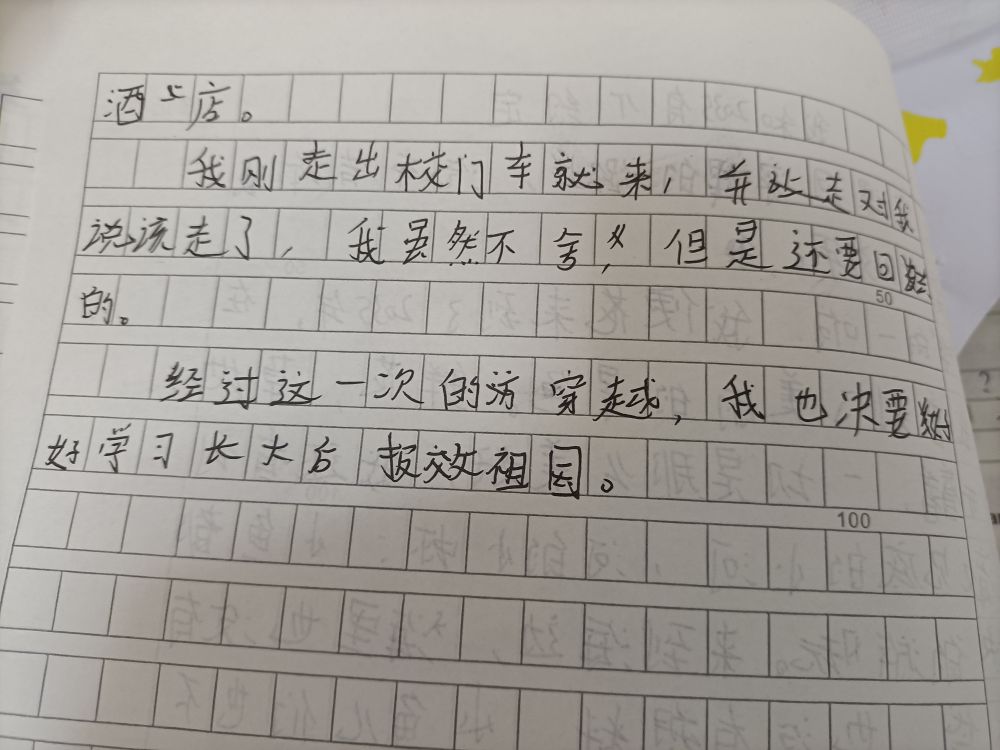 酒店。
我刚走出校门车就来，并站走对我
说该走了，我虽然不舍，但是还要回数
的。
50
经过这一次的访穿越，我也决要数
好学习长大后报效祖国。
100